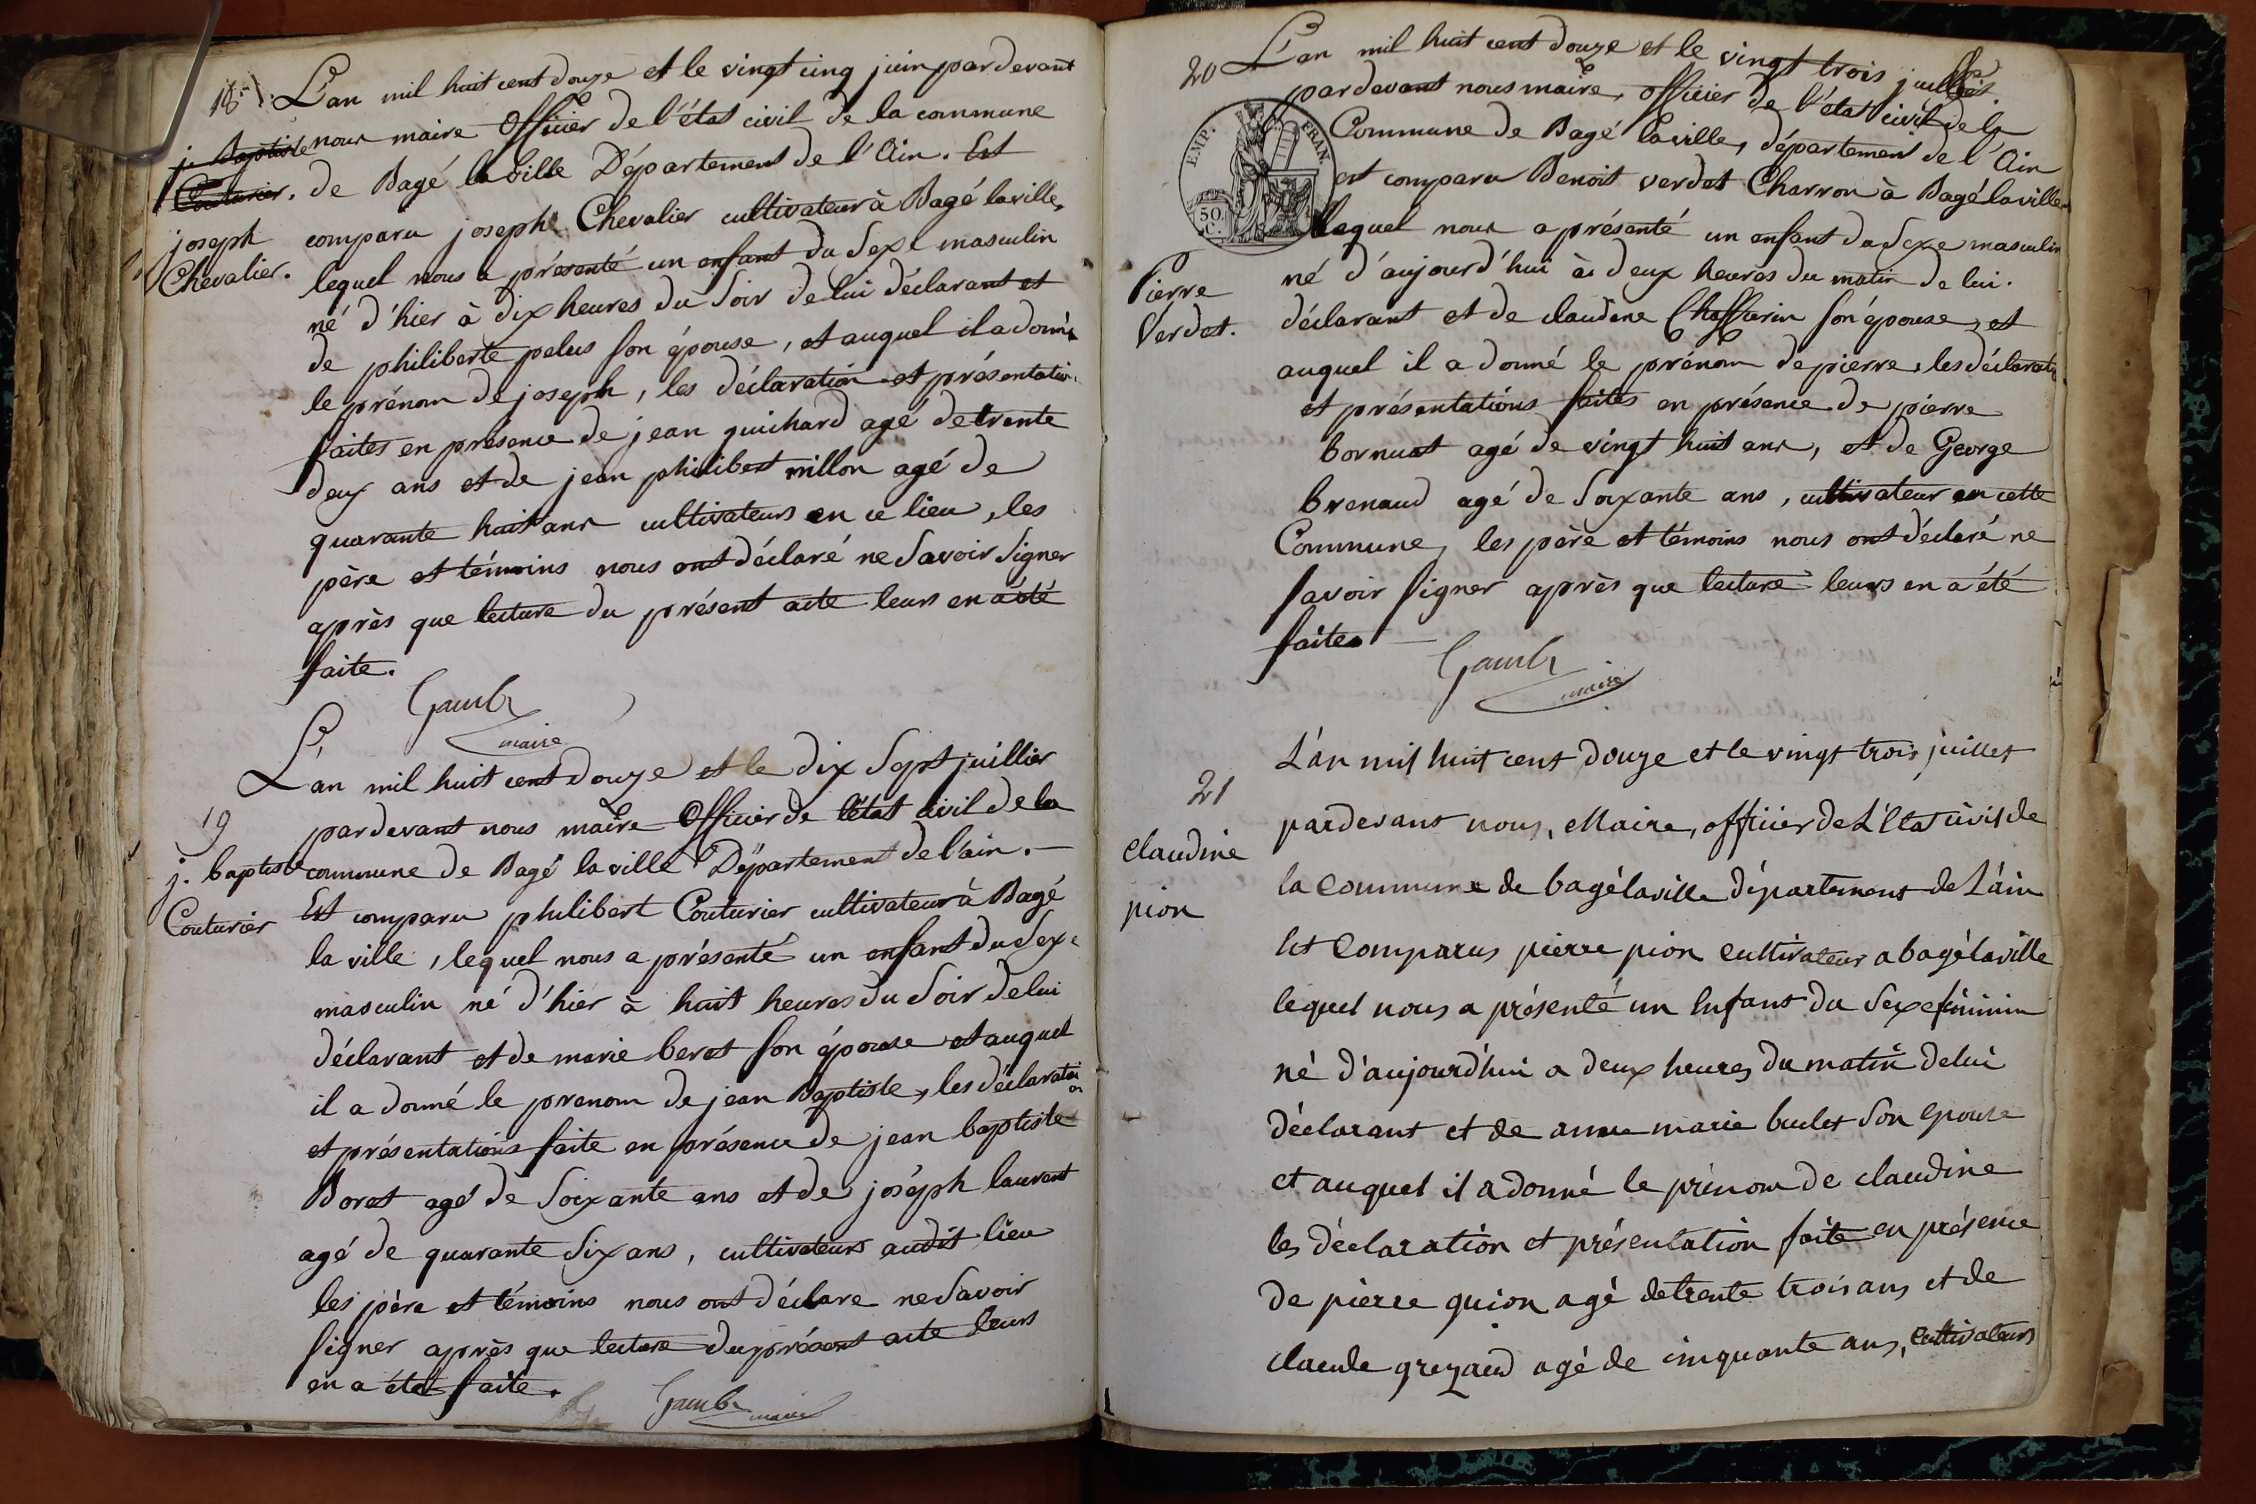 18
L'an mil huit cent douze et le vingt cinq juin pardevant
j. Baptiste
nous maire officier de l'état civil de la commune
Couturier.
de Bagé la ville Département de l'Ain. Est
joseph
Chevalier.
comparu joseph Chevalier cultivateur à Bagé laville,
lequel nous a présenté un enfant du Sexe masculin
né d'hier à dix heures du Soir de lui déclarant et
de philiberte pelus son épouse, et auquel il a donné
le prénom de joseph, les déclaration et présentation
faites en présence de jean guichard agé de trente
deux ans et de jean philibert millon agé de
quarante huit ans cultivateurs en ce lieu, les
père et témoins nous ont déclaré ne Savoir Signer
après que lecture du présent acte leurs en a été
faite.
maire
L'an mil huit cent douze et le dix Sept juillier
19
pardevant nous maire officier de l'état civil de la
j. baptiste
Couturier
commune de Bagé la ville Département de l'ain. —
Est comparu philibert Couturier cultivateur à Bagé
la ville, lequel nous a présenté un enfant du Sexe
masculin né d'hier à huit heures du Soir de lui
déclarant et de marie beret son épouse et auquel
il a donné le prenom de jean Baptiste, les déclaration
et présentations faite en présence de jean baptiste
Boret agé de Soixante ans et de joséph laurent
agé de quarante Six ans, cultivateurs audit lieu
les père et témoins nous ont déclare ne Savoir
Signer après que lecture du présent acte leurs
en a été faite.
maire
20
L'an mil huit cent douze et le vingt trois juillet
pardevant nous maire, officier de l'état civil de la
EMP. FRAN.
50.
C.
Commune de Bagé laville, département de l'Ain
est comparu Benoit verdet Charron à Bagé laville
lequel nous a présenté un enfant du Sexe masculin
Pierre
Verdet.
né d'aujourd'hui à deux heures du matin de lui.
déclarant et de claudine Chaffarin son épouse, et
auquel il a donné le prénom de pierre, les déclaration
et présentations faites en présence de pierre
bornuat agé de vingt huit ans, et de George
brenaud agé de Soixante ans, cultivateur en cette
Commune, les père et témoins nous ont déclaré ne
savoir signer après que lecture leurs en a été
faite. —
maire
L'an mil huit cent douze et le vingt trois juillet
21
pardevant nous, Maire, officier de L'Etat civil de
claudine
pion
la commune de bagélaville département de L'ain
Est Comparus pierre pion cultivateur a bagélaville
lequel nous a présenté un Enfant du Sexe féminin
né d'aujourd'hui a deux heures du matin de lui
déclarant et de anne marie bulet Son epouse
et auquel il a donné le prénom de claudine
les déclaration et présentation faite en présence
de pierre guion agé de trente trois ans et de
claude greZaud agé de cinquante ans, cultivateurs